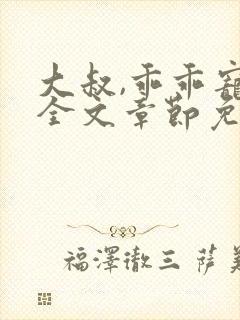 大叔,乖乖寵
全文章節免
福澤徹三 薩美